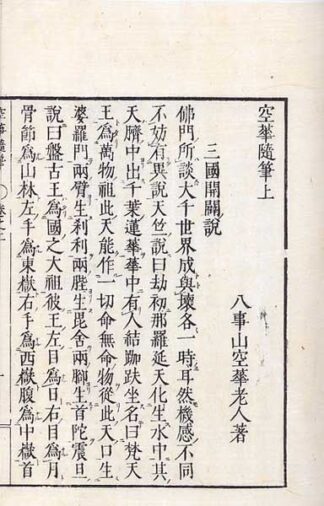 空華隨筆上
八事山空華老人著
三國開闢說
佛門所談大千世界成與壞各一時耳然機感不同
不妨有異說天竺說曰劫初那羅延天化生水中其
天臍中出千葉蓮華華中有人結跏趺坐名曰梵天
王爲萬物祖此天能作一切命無命物從此天口生
婆羅門兩臂生刹利兩䏶生毘舍兩腳生首陀震旦
說曰盤古王爲國之大祖彼王左目爲日右目爲月
骨節爲山林左手爲東嶽右手爲西嶽腹爲中嶽首